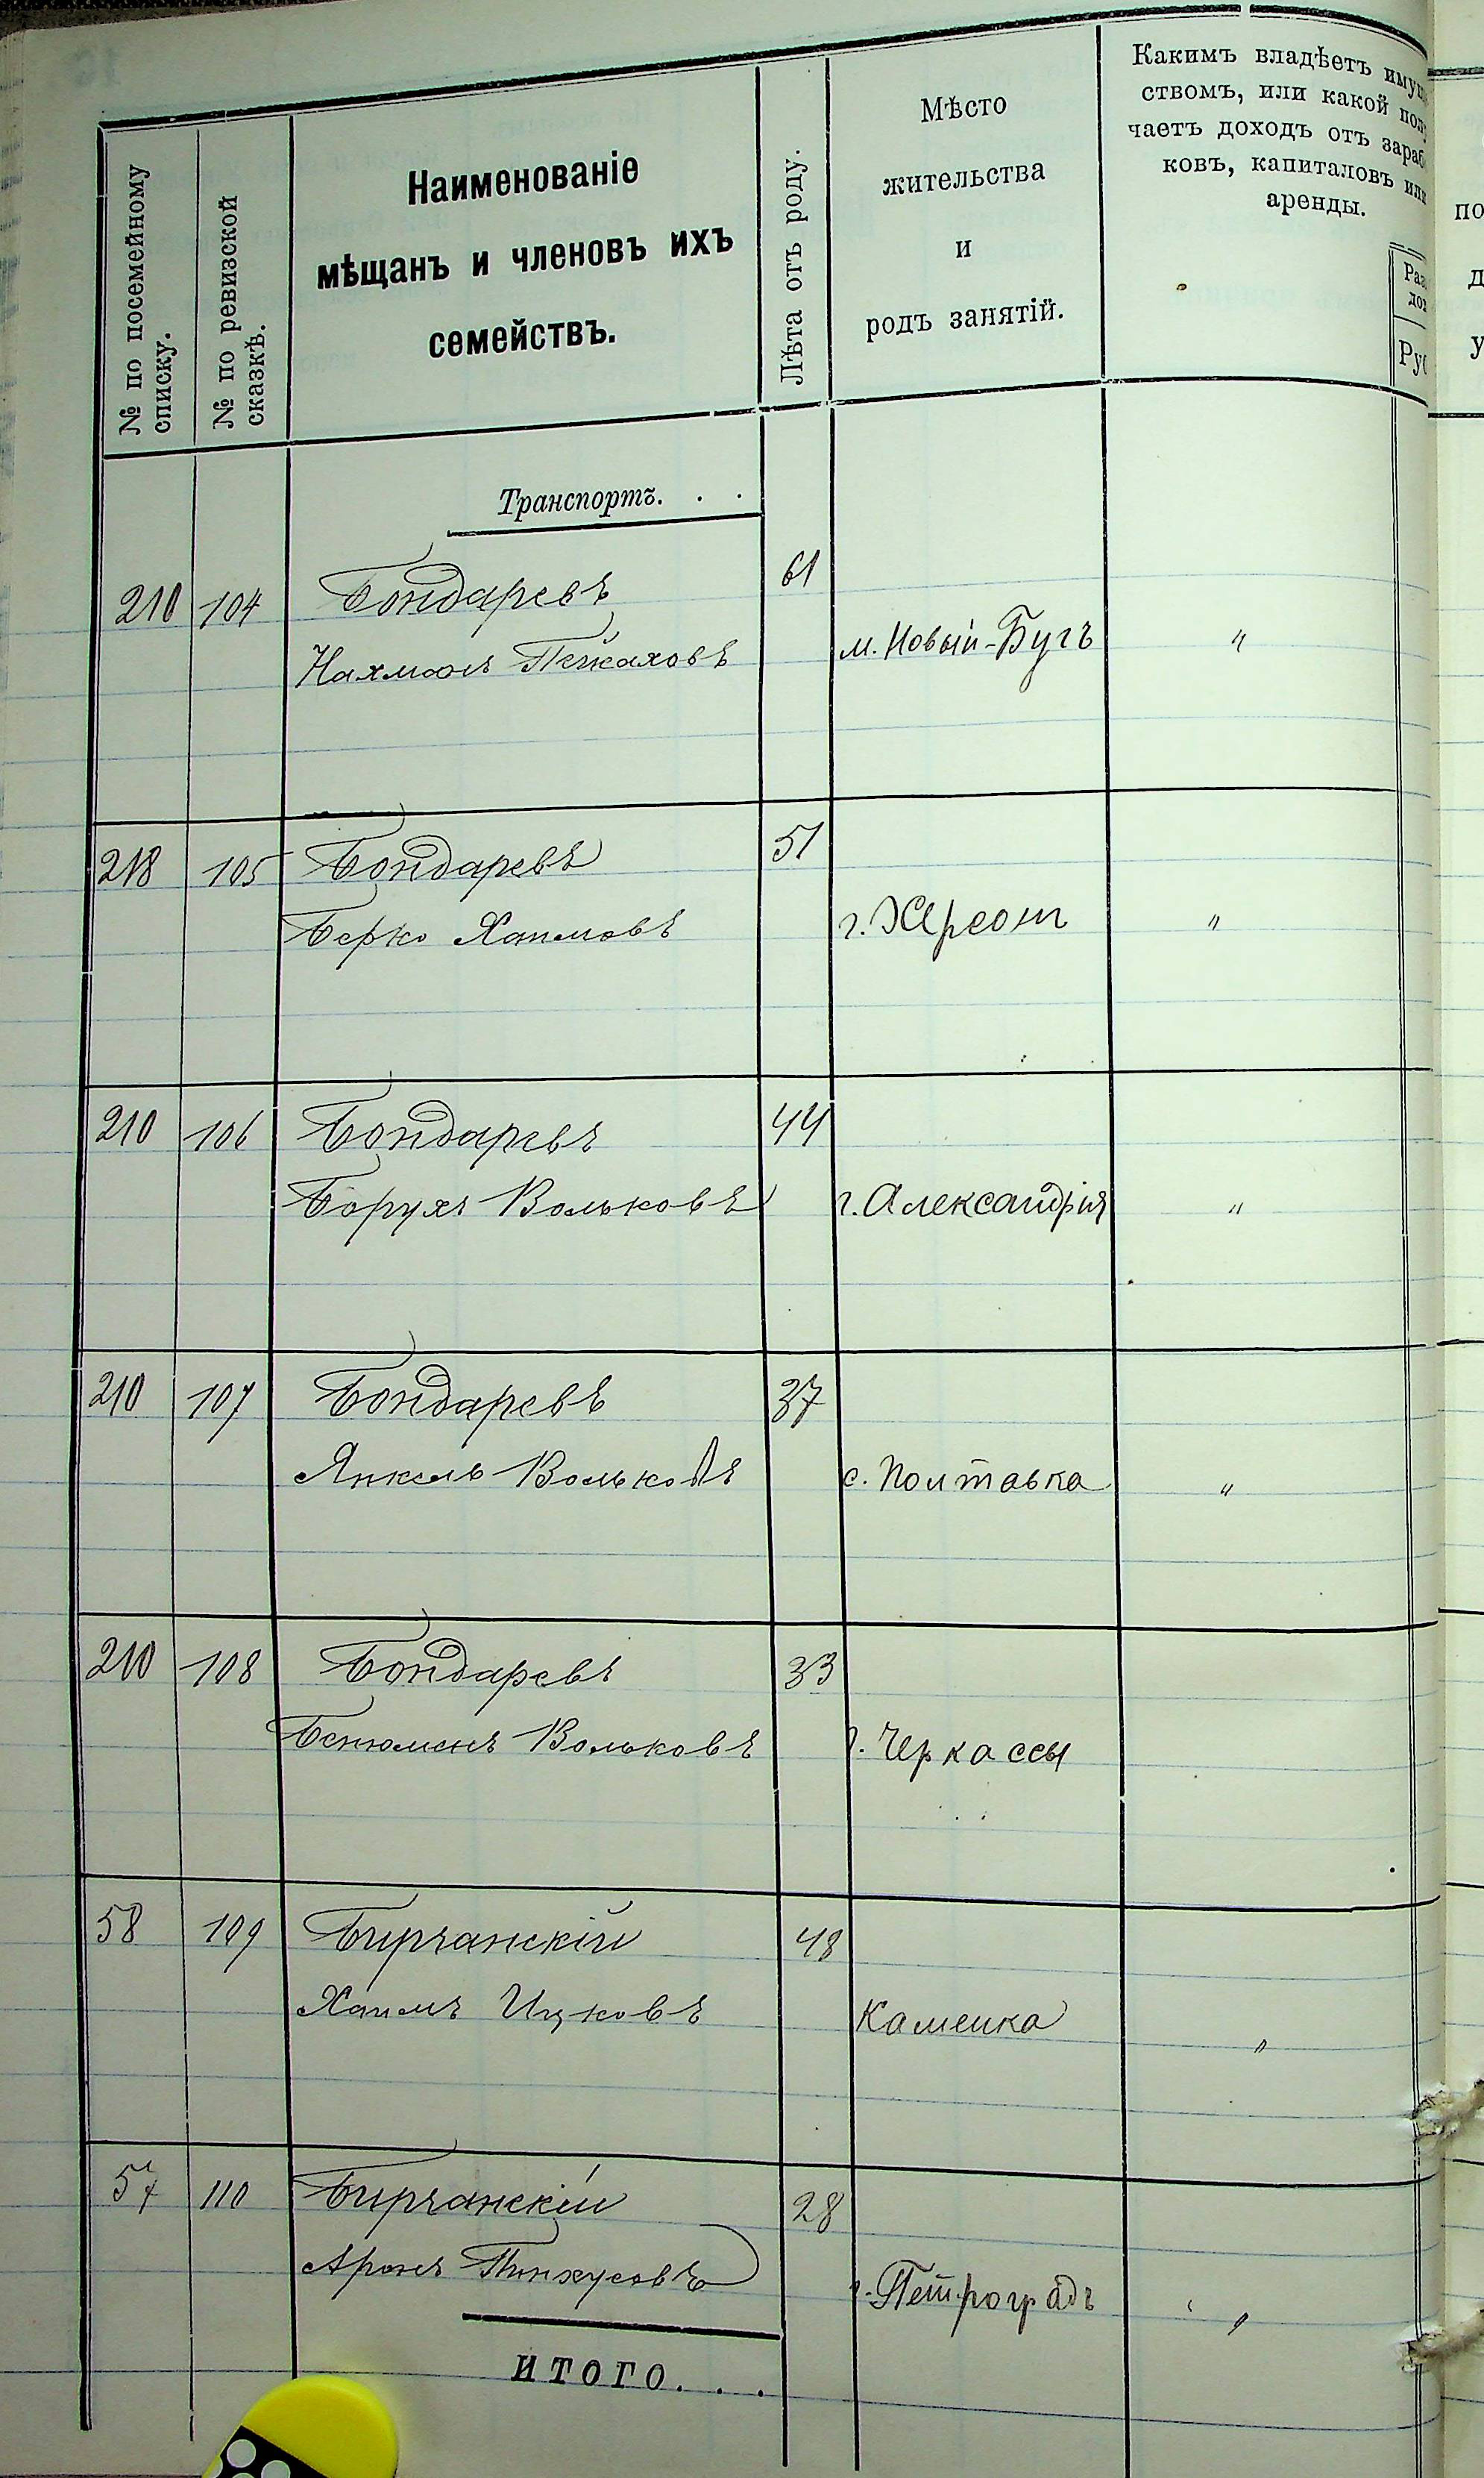 № по посемейному
списку.
№ по ревизской
сказкѣ.
Наименованіе
мѣщанъ и членовъ ихъ
семействъ.
Лѣта отъ роду.
Мѣсто
жительства
и
родъ занятій.
Какимъ владѣетъ имущ
ствомъ, или какой полу
чаетъ доходъ отъ зараб
ковъ, капиталовъ или
аренды.
Раз
дох
Руб
Транспортъ. . .
210 104 Бондаревъ 61
Нахманъ Пейсаховъ м. Новый-Бугъ "
218 105 Бондаревъ 51
Берко Хаимовъ г. Херсонъ "
210 106 Бондаревъ 44
Борухъ Вольковъ г. Александрія "
210 107 Бондаревъ 37
Янкель Вольковъ с. Полтавка "
210 108 Бондаревъ 33
Бенюменъ Вольковъ г. Черкассы
58 109 Бирчанскій 48
Хаимъ Ицковъ Каменка "
57 110 Бирчанскій 28
Аронъ Пинхусовъ г. Петроградъ "
ИТОГО. . .
по
д
у